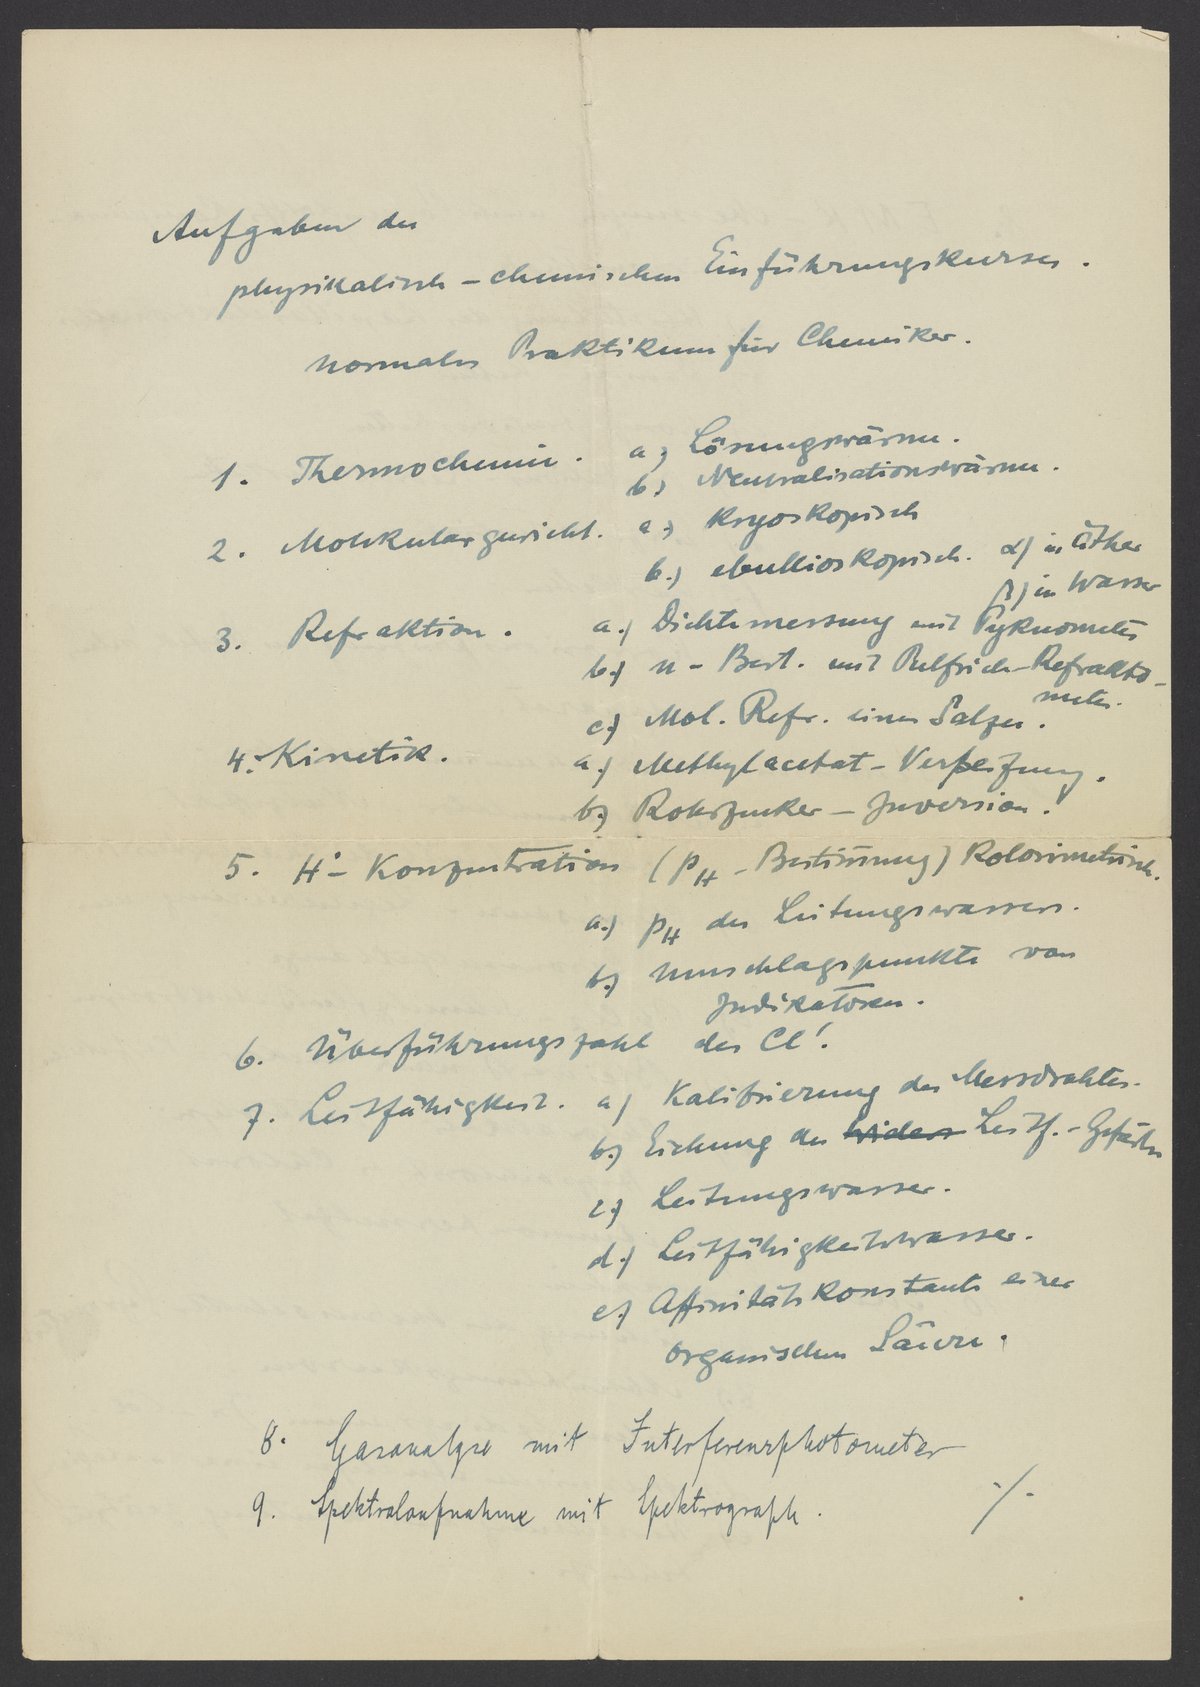 Aufgaben des
physikalisch-chemischen Einführungskurses.
normales Praktikum für Chemiker.
1. Thermochemie. a) Lösungswärme.
b) Neutralisationswärme.
2. Molekulargewicht. a) Kryoskopisch
b.) ebullioskopisch. α) in Äther
β) in Wasser
3. Refraktion. a.) Dichtemessung mit Pyknometer
b.) n-Best. mit Pulfrich-Refrakto-
meter.
c.) Mol. Refr. eines Salzes.
4. Kinetik. a.) Methylacetat-Verseifung.
b.) Rohrzucker-Inversion.
5. H˙-Konzentration (pH-Bestimmung) Kolorimetrisch.
a.) pH des Leitungswassers.
b.) Umschlagspunkte von
Indikatoren.
6. Überführungszahl des Cl'.
7. Leitfähigkeit. a) Kalibrierung des Messdrahtes.
b.) Eichung des Leitf.-Gefäßes
c.) Leitungswasser.
d.) Leitfähigkeitswasser.
e.) Affinitätskonstante einer
organischen Säure.
8. Gasanalyse mit Interferenzphotometer
9. Spektralaufnahme mit Spektrograph.
./.